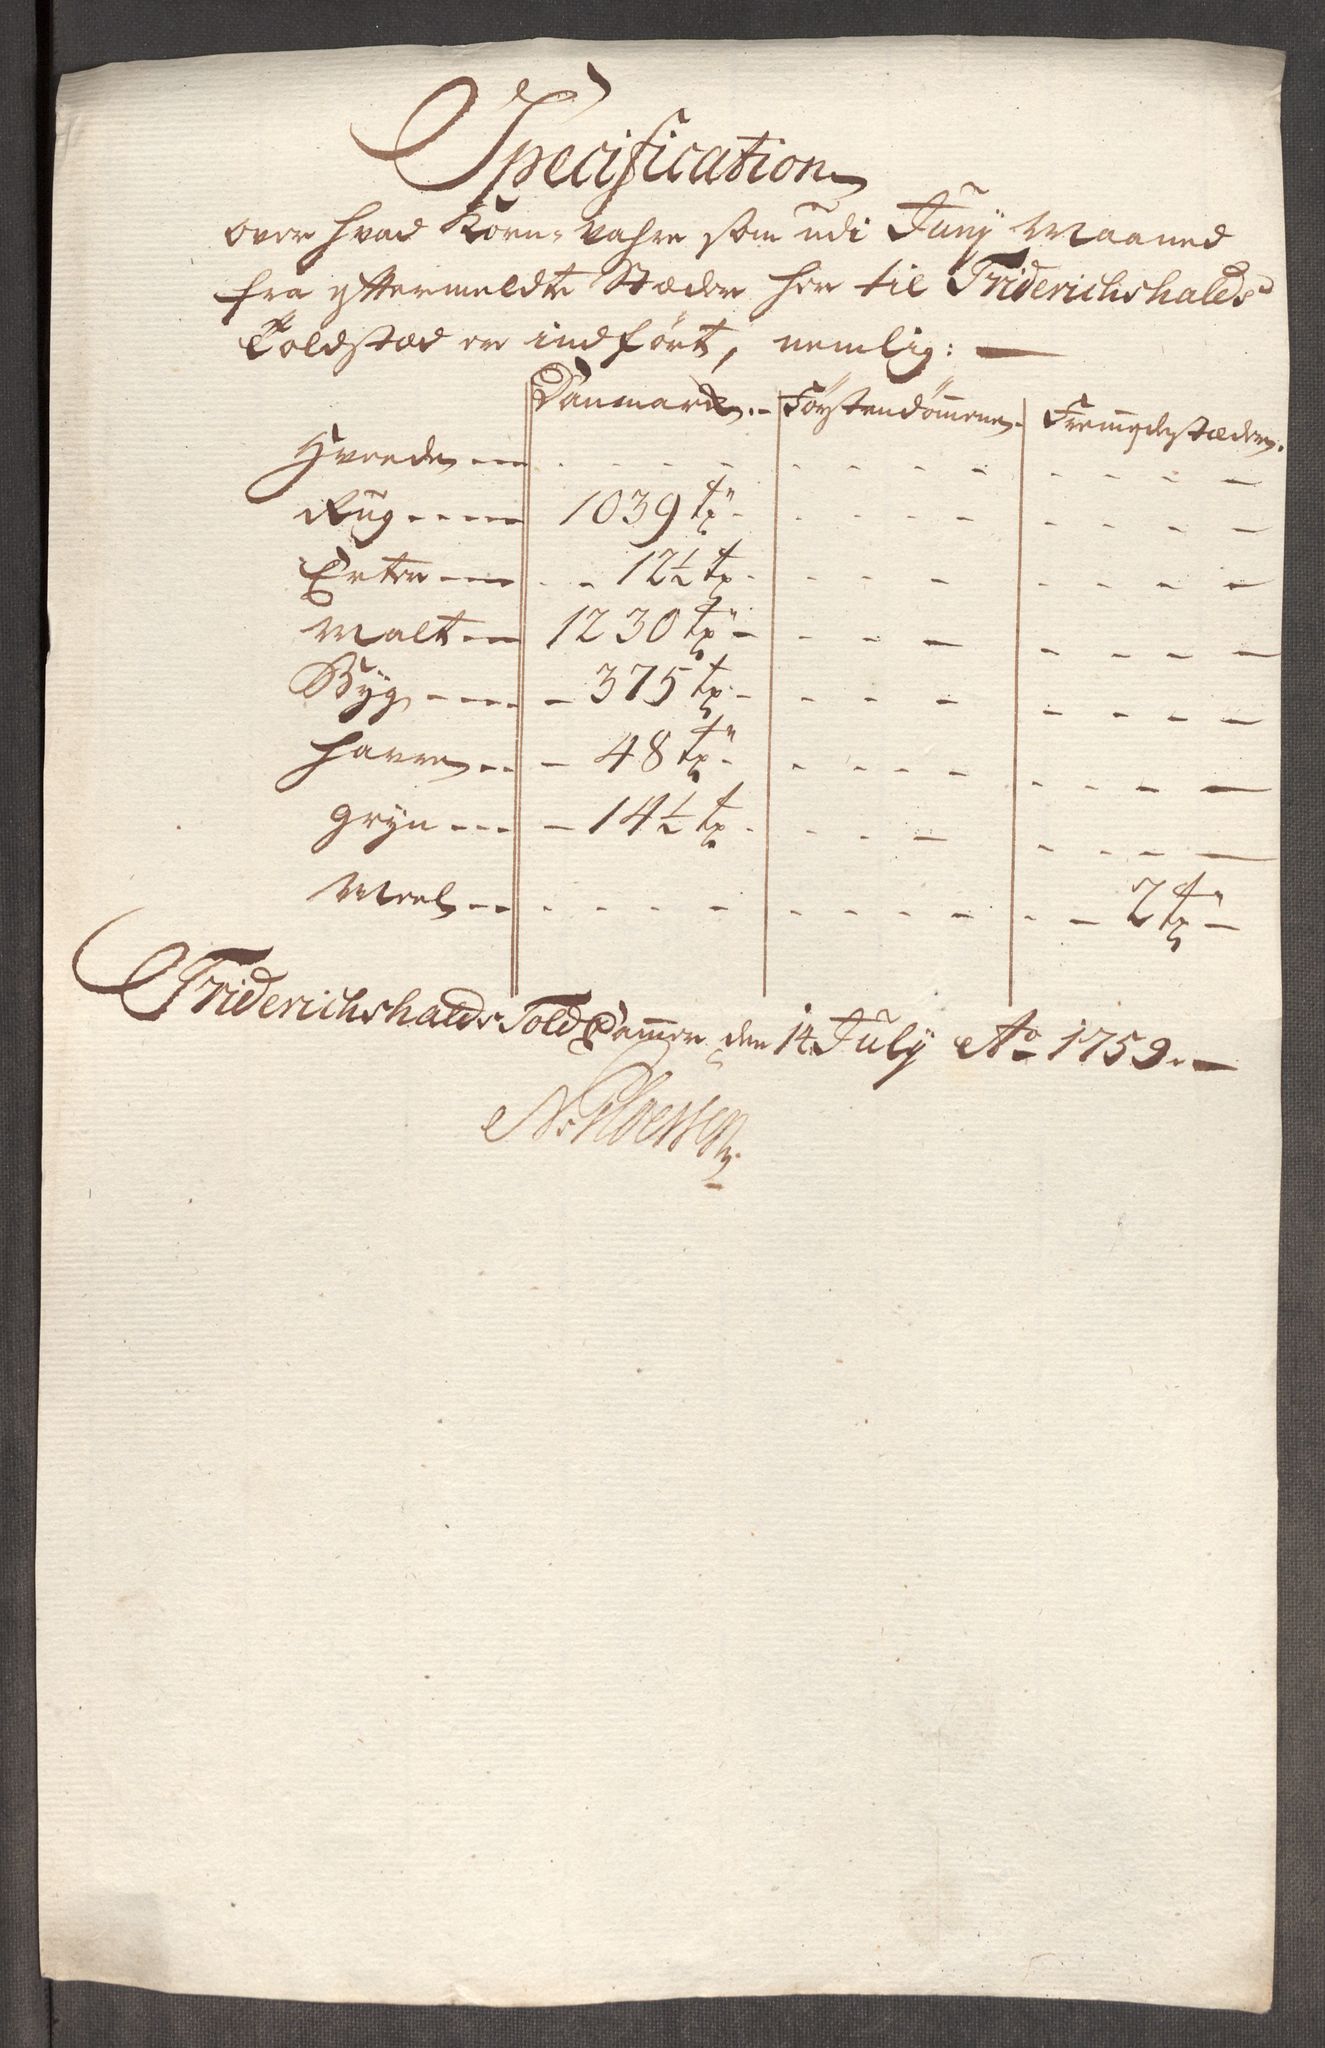 Specification
over hvad Korn-Vahre som udi Junij Maaned
fra eftermeldte Stæder her til Friderichshalds
Toldstæd er indført, nemlig:
Danmark. Førstendømmene. Fremmede stæder.
Hvede
Rug 1039 tr
Erter 12½ tr
Malt 1230 tr
Byg 375 tr
Havre 48 tr
Gryn 14½ tr
Meel 2 tr
Friderichshalds Told Cammer den 14 July Ao 1759.